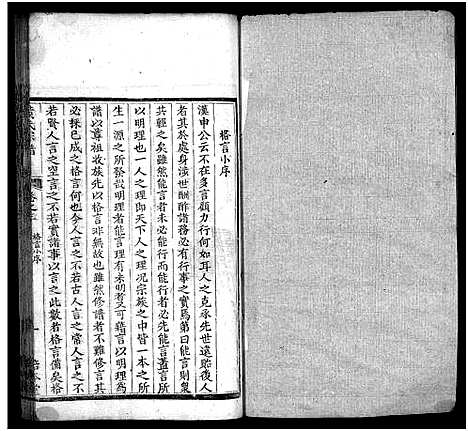 格言小序
漢申公云不在多言顧力行何如耳人之克承先世遠貽後人
者其於處身涉世酬酢諸務必有行事之實焉第曰能言則衆
共輕之矣雖然能言者未必能行而能行者未必能言蓋言所
以明理也人一天下之理即天下人之理况宗族之中皆一本之所
生一源之所發説明理者有未明者又可藉言以明理為人乎
譜以尊祖收族先以格言非無故也雖然修譜者不難修言其
必採已成之格言何也今人言之不若古人言之常人言之不
若賢人言之空言之不若實諸事以言之此數者格言備矣格
黃氏宗譜
卷之
格言小序
一